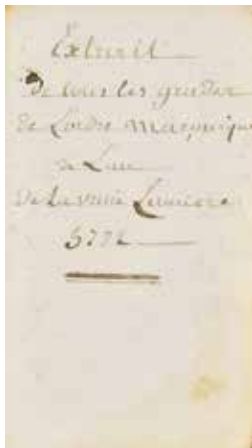 Extrait
de tous les grades
de Lordre maçonnique
de Lan
De La vraie Lumiere
5772